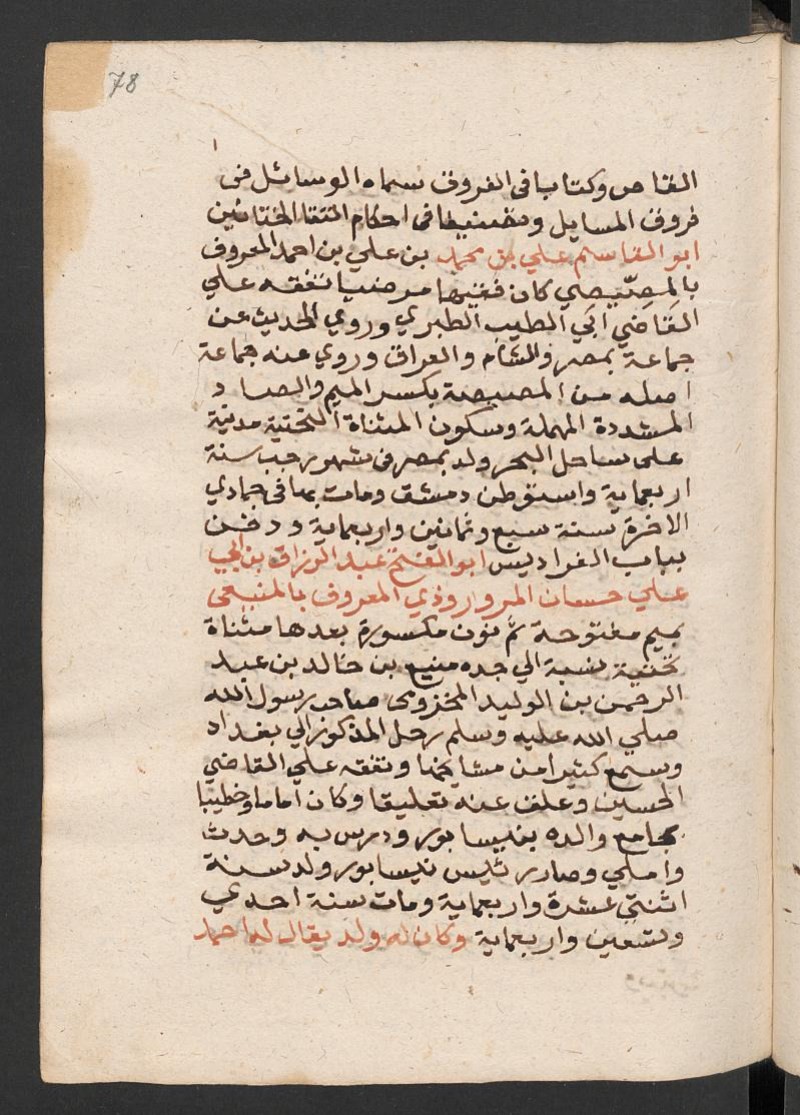 78
القاص وكتابا فى الفروق سماه الوسائل فى
فروق المسايل وتصنيفا فى احكام التقا الختانين
ابو القاسم علي بن محمد بن علي بن احمد المعروف
بالمصّيصي كان فقيها مرضيا تفقه علي
القاضي ابي الطيب الطبري وروي الحديث عن
جماعة بمصر والشام والعراق وروي عنه جماعة
اصله من المصيصة بكسر الميم والصاد
المشددة المهملة وسكون المثناة التحتية مدينة
على ساحل البحر ولد بمصر فى شهر رجب سنة
اربعماية واستوطن دمشق ومات بها فى جمادي
الاخرة سنة سبع وثمانين واربعماية ودفن
بباب الفراديس ابو الفتح عبد الرزاق بن ابي
علي حسان المروروذي المعروف بالمنيعى
بميم مفتوحة ثم نون مكسورة بعدها مثناة
تحتية نسبة الي جده منيع بن خالد بن عبد
الرحمن بن الوليد المخزومى صاحب رسول الله
صلي الله عليه وسلم رحل المذكور الي بغداد
وسمع كثيرا من مشايخنا وتفقه علي القاضي
الحسين وعلف عنه تعليقا وكان اماما وخطيبا
بجامع والده بنيسابور ودرس به وحدث
واملي وصار رئيس نيسابور ولد سنة
اثنتي عشرة واربعماية ومات سنة احدي
وتسعين واربعماية وكان له ولد يقال له احمد